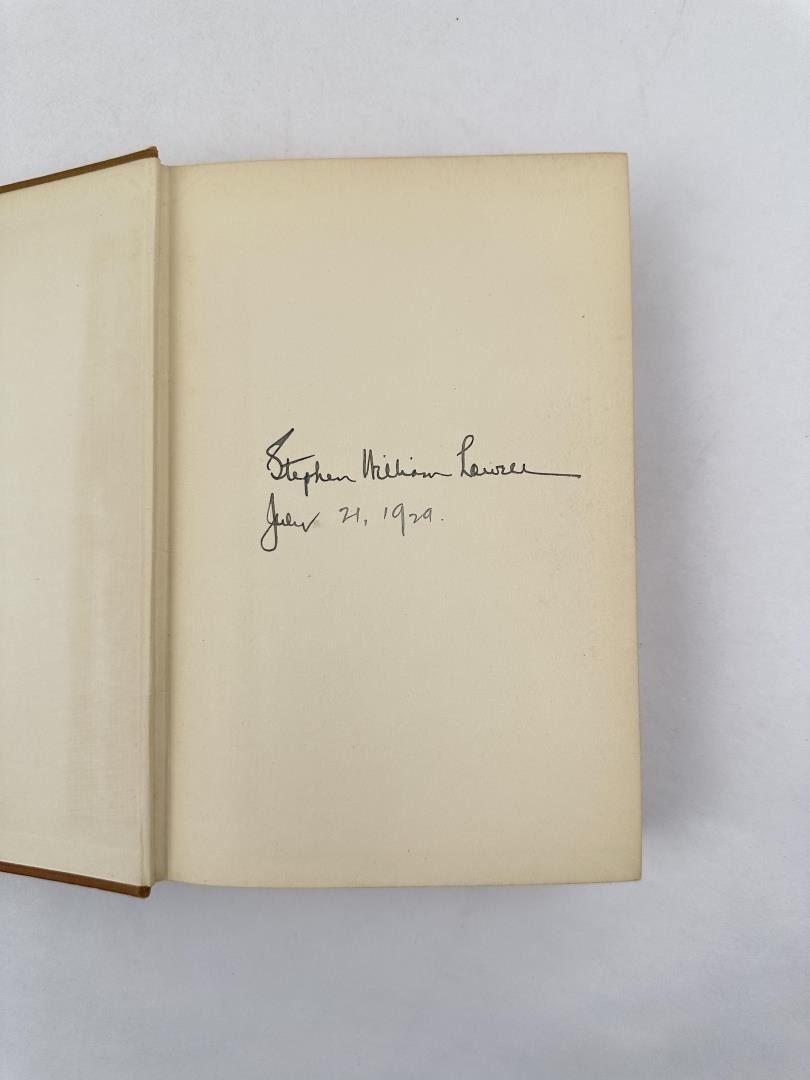 Stephen William Lowell
July 21, 1929.